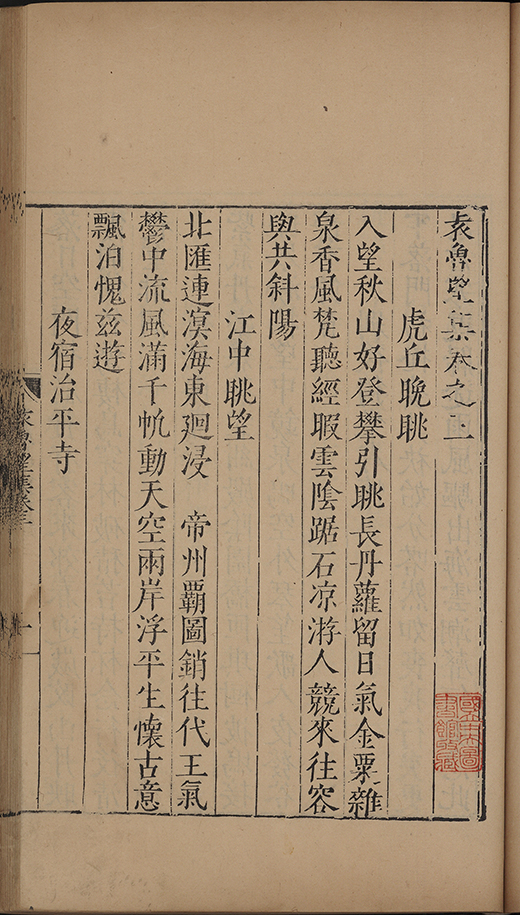 袁魯望集卷之三
虎丘晚眺
入望秋山好登攀引眺長丹蘿留日氣金粟雜
泉香風梵聽經暇雲陰踞石凉游人競來往容
與共斜陽
江中眺望
北匯連溟海東廻浸　帝州霸圖銷往代王氣
鬱中流風滿千帆動天空兩岸浮平生懷古意
飄泊愧茲遊
夜宿治平寺
袁魯望集卷三
一
國立中央圖
書館收藏